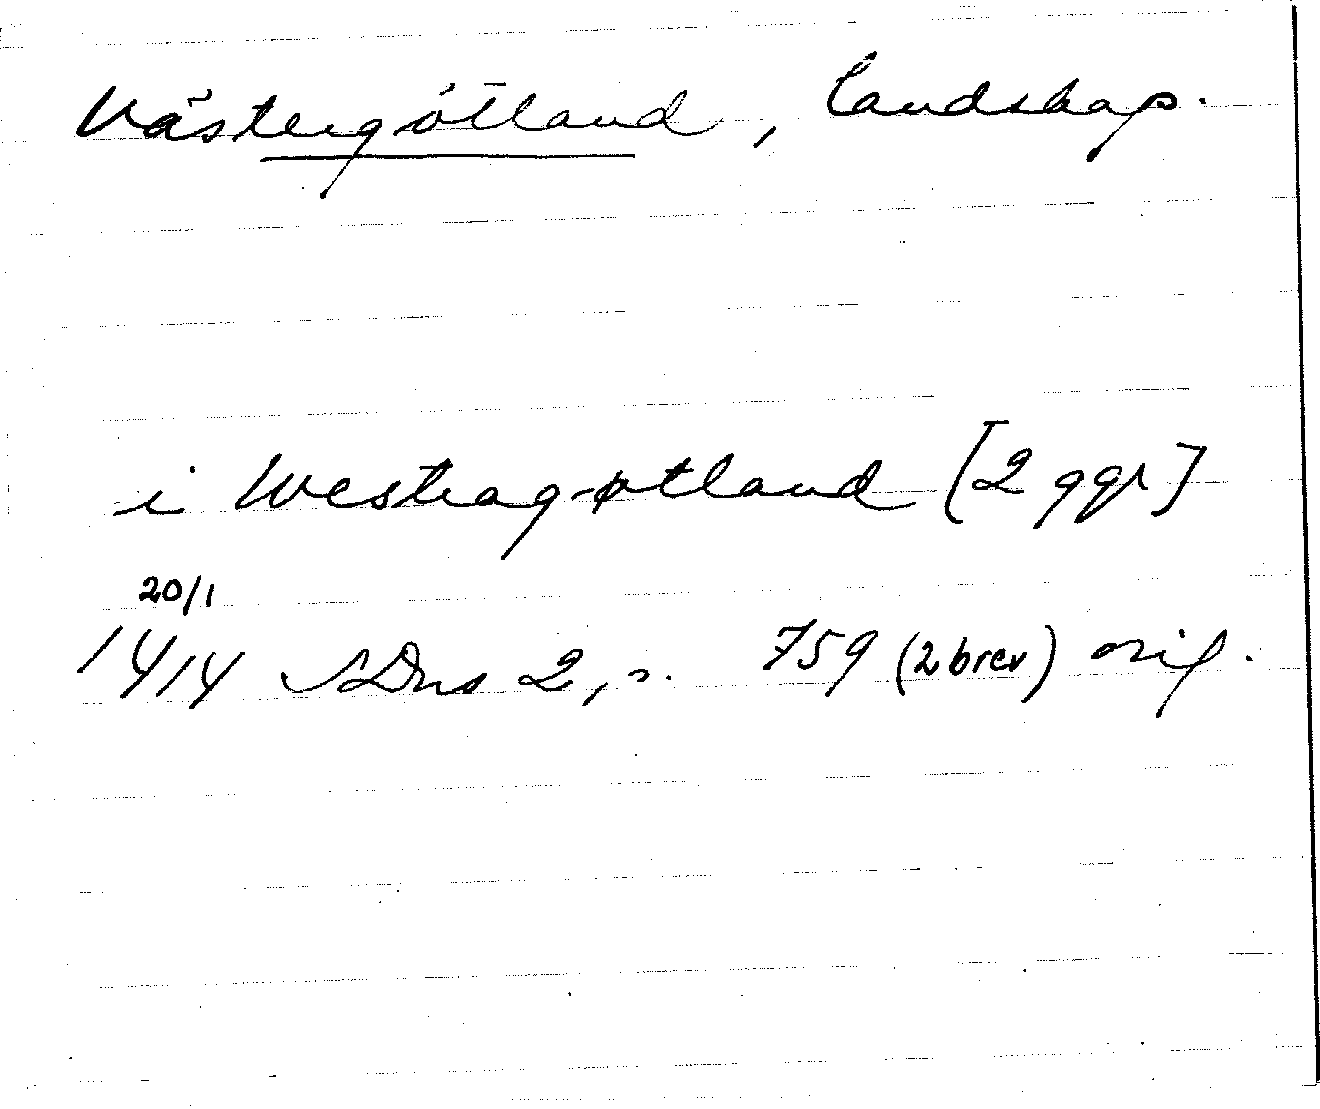 Västergötland, landskap.
i Westragøtland [2 ggr]
20/1
1414 SDns 2, s. 759 (2 brev) orig.